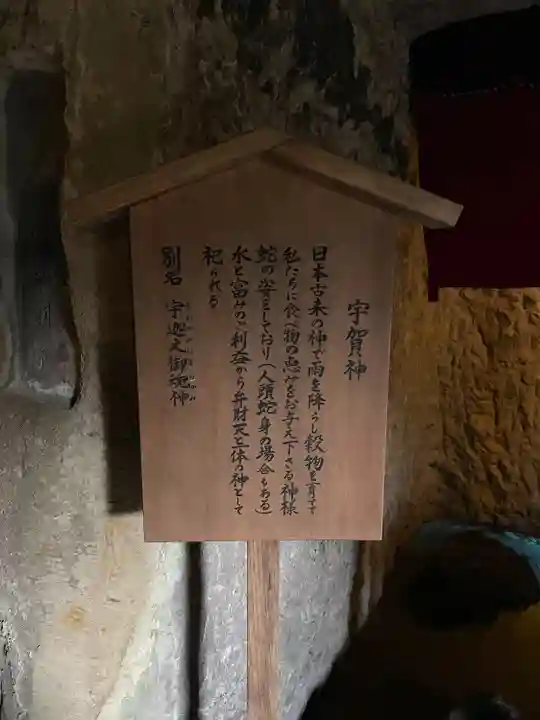 宇賀神
日本古来の神で雨を降らし穀物を育てて
私たちに食べ物の恵みをお与え下さる神様
蛇の姿をしており（人頭蛇身の場合もある）
水と富みのご利益から弁財天と一体の神として
祀られる
別名　宇迦之御魂神